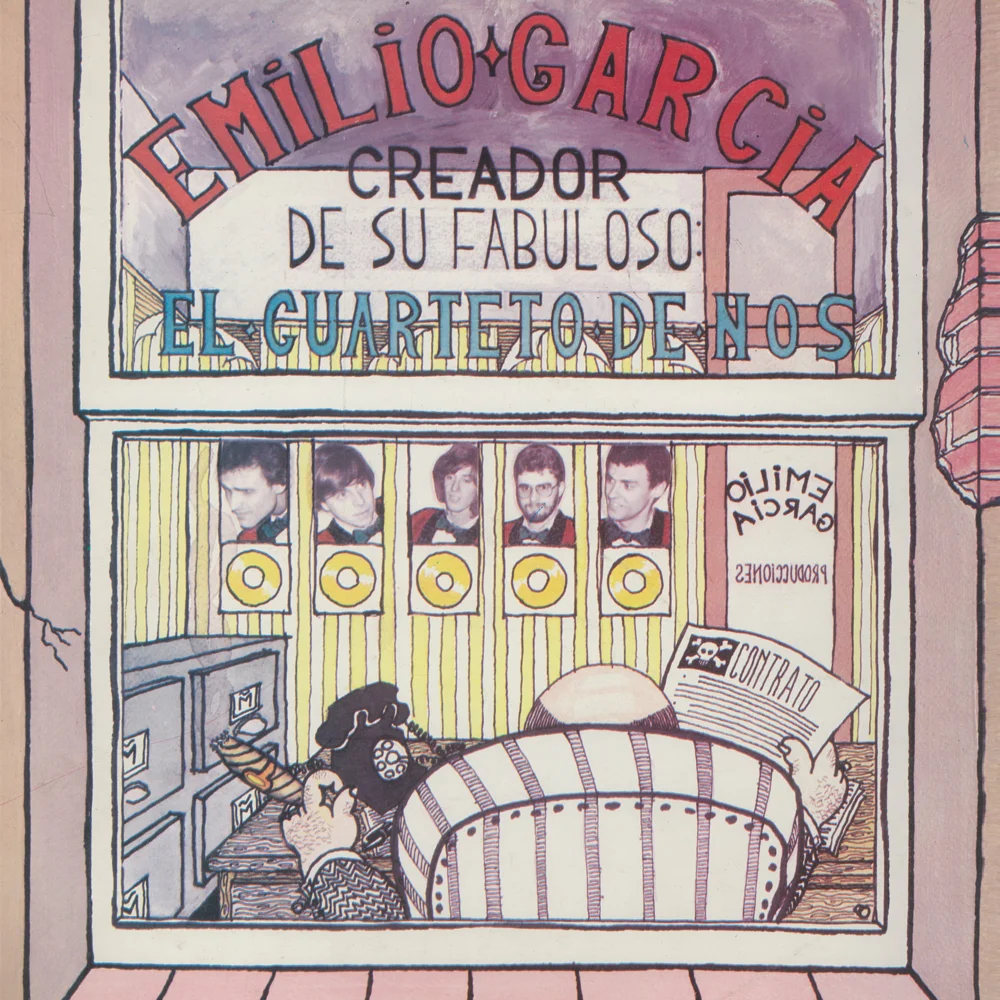 EMiLiO GARCiA
CREADOR
DE SU FABULOSO:
EL CUARTETO DE NOS
EMiLiO
GARCiA
PRODUCCiONES
CONTRATO
M
M
M
M